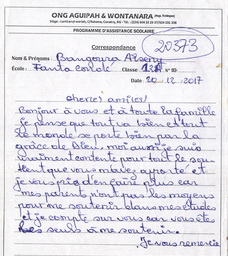 ONG AGUIPAH & WONTANARA
PROGRAMME D'ASSISTANCE SCOLAIRE
Correspondance
20373
Nom & Prénoms : Bangoura Alseny
École : Fanta Classe
Date 20-12-2017
cher(e) ami(e)
Bonjour à vous et à toute la famille
je pense que tout va bien et tout
le monde se porte bien par la
grâce de Dieu, moi aussi je suis
vraiment content pour tout le sou
tient que vous m'avez apporté et
je vous prie d'en faire plus car
mes parents n'ont pas les moyens
pour me soutenir dans mes études
et je compte sur vous car vous êtes
les seuls à me soutenir.
je vous remercie